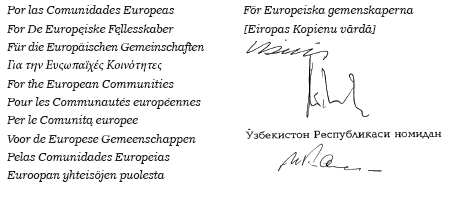 Por las Comunidades Europeas
For De Europęiske Fęllesskaber
Für die Europäischen Gemeinschaften
Για την Ενςωπαϊχές Κοινότητες
For the European Communities
Pour les Communautés européennes
Per le Comunitą europee
Voor de Europese Gemeenschappen
Pelas Comunidades Europeias
Euroopan yhteisöjen puolesta
För Europeiska gemenskaperna
[Eiropas Kopienu vārdā]
Ўзбекистон Республикаси номидан